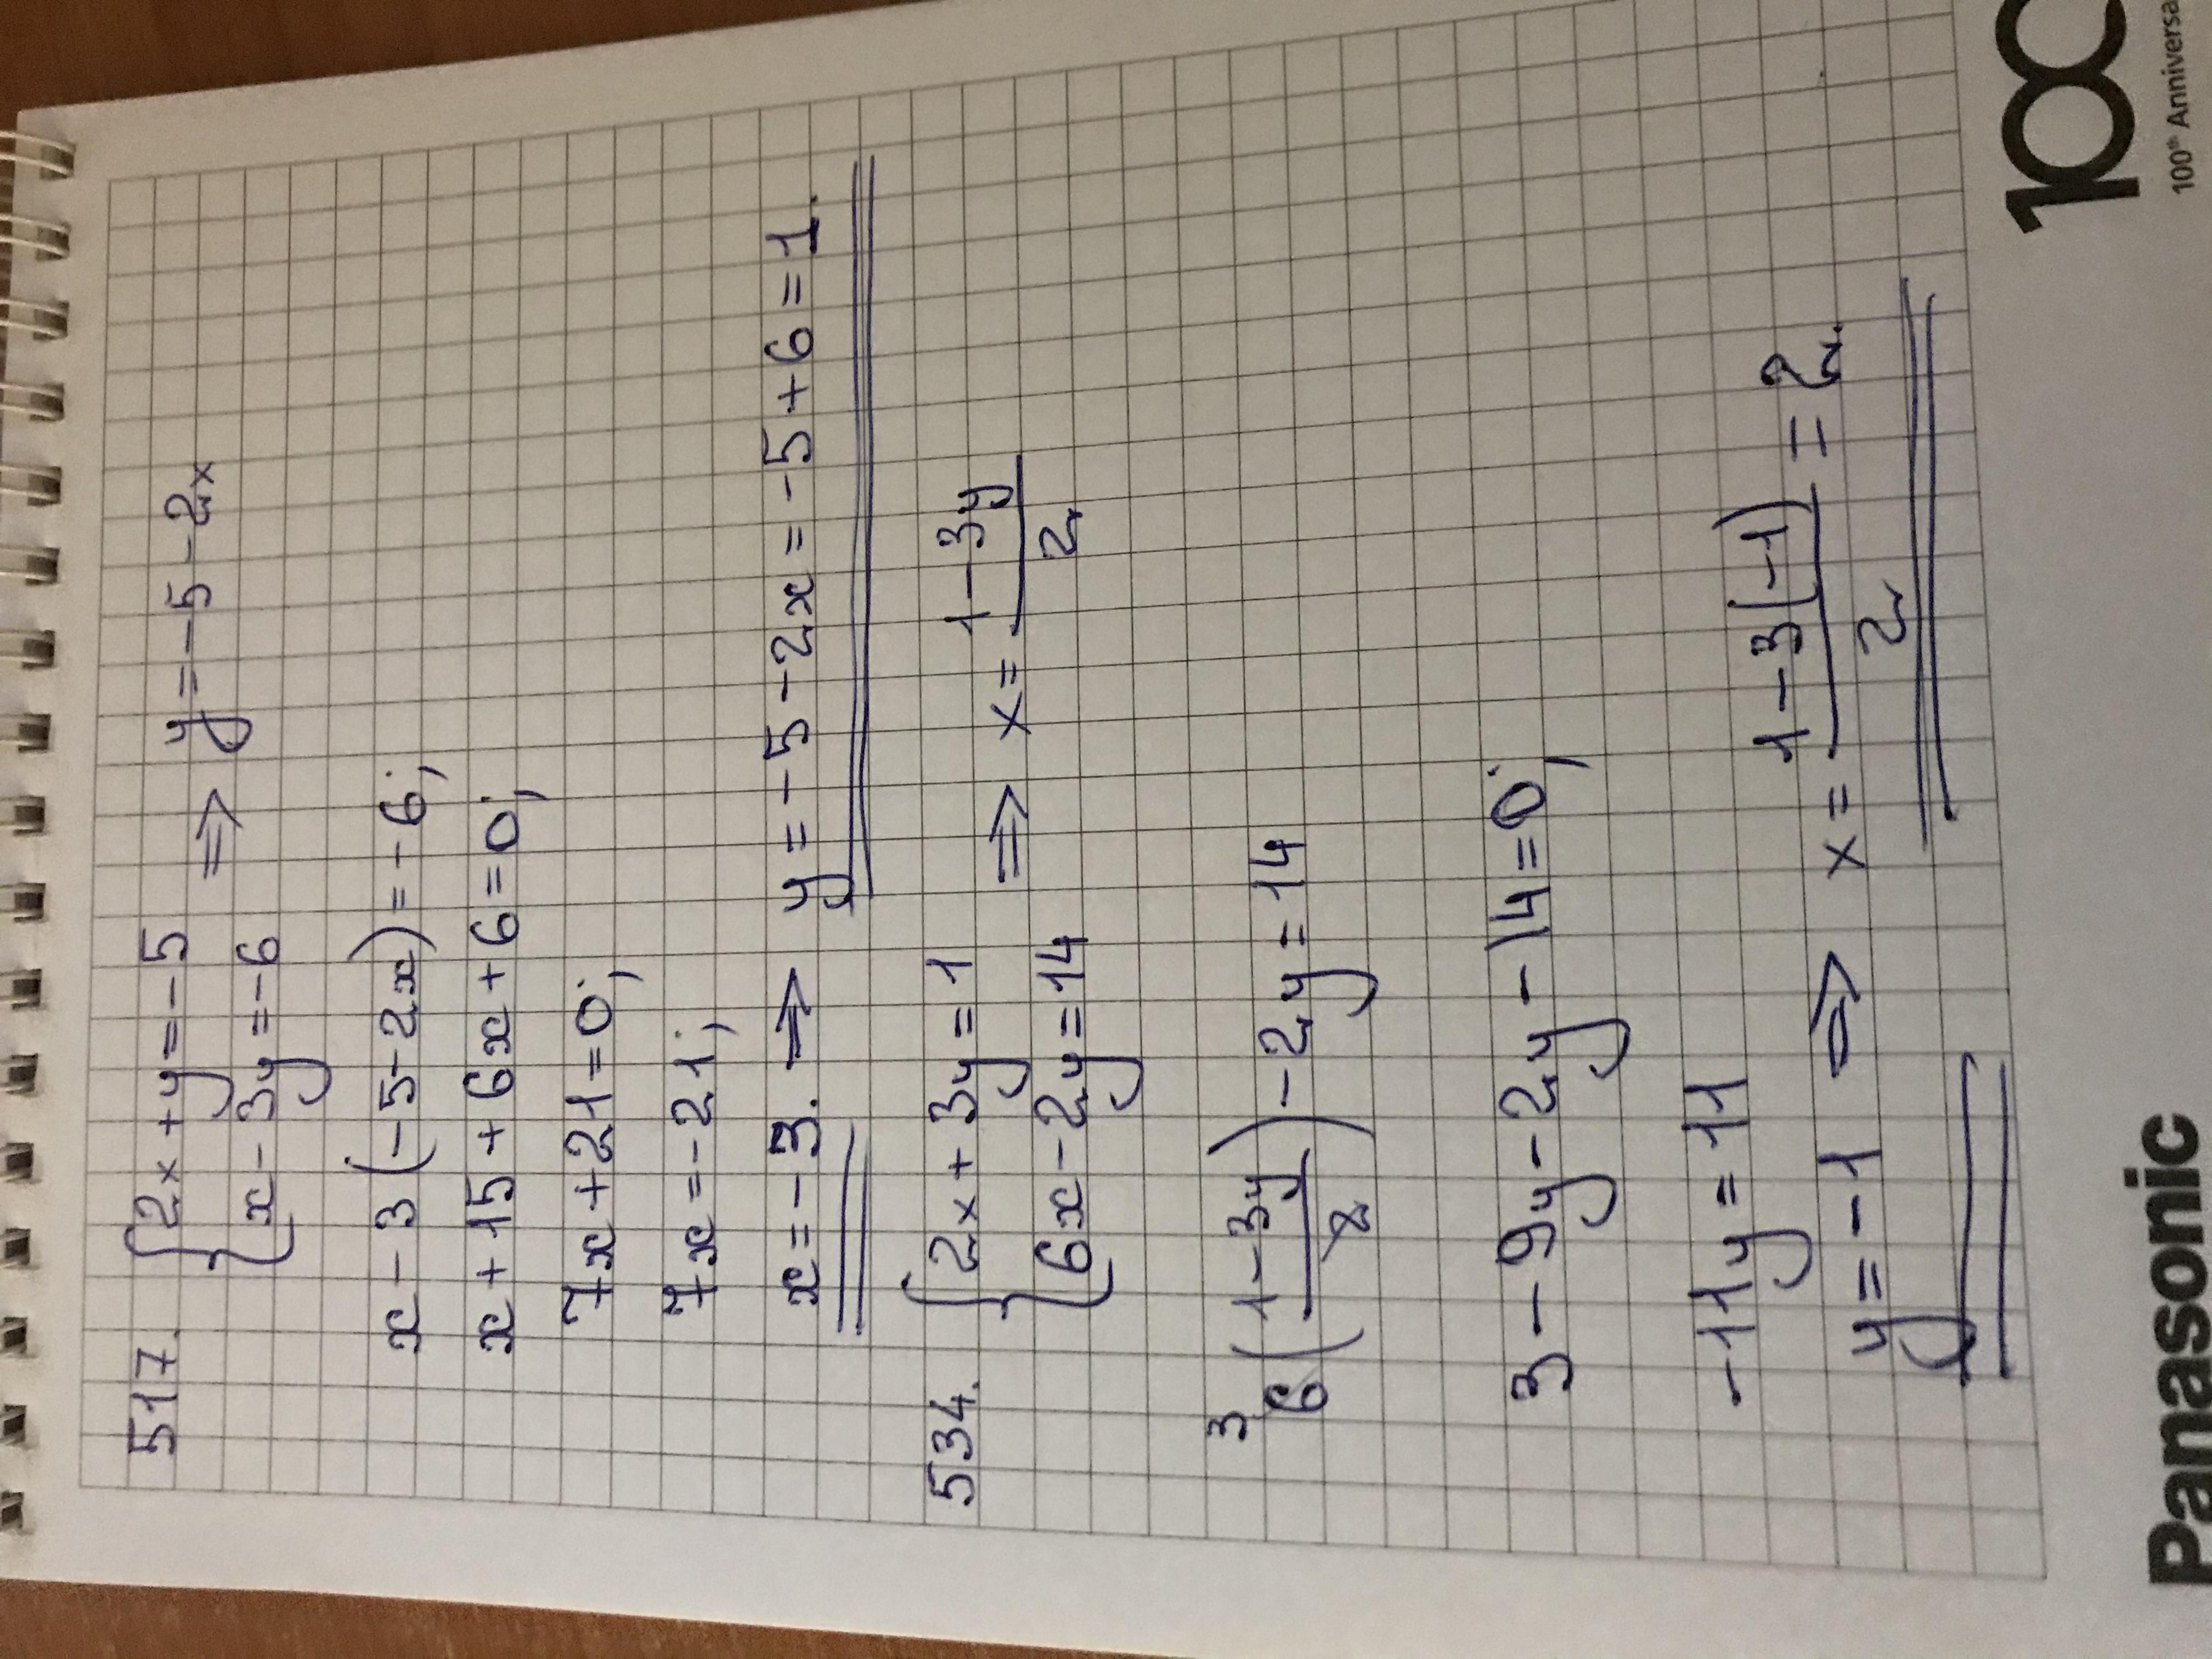 517. {2x + y = -5 => y = -5 - 2x
{x - 3y = -6
x - 3(-5-2x) = -6;
x + 15 + 6x + 6 = 0;
7x + 21 = 0;
7x = -21;
x = -3. → y = -5 - 2x = -5 + 6 = 1.
534. {2x + 3y = 1
{6x - 2y = 14 => x = (1-3y)/2
3
6((1-3y)/2) - 2y = 14
3 - 9y - 2y - 14 = 0;
-11y = 11
y = -1 => x = (1-3(-1))/2 = 2.
Panasonic
100
100th Anniversa